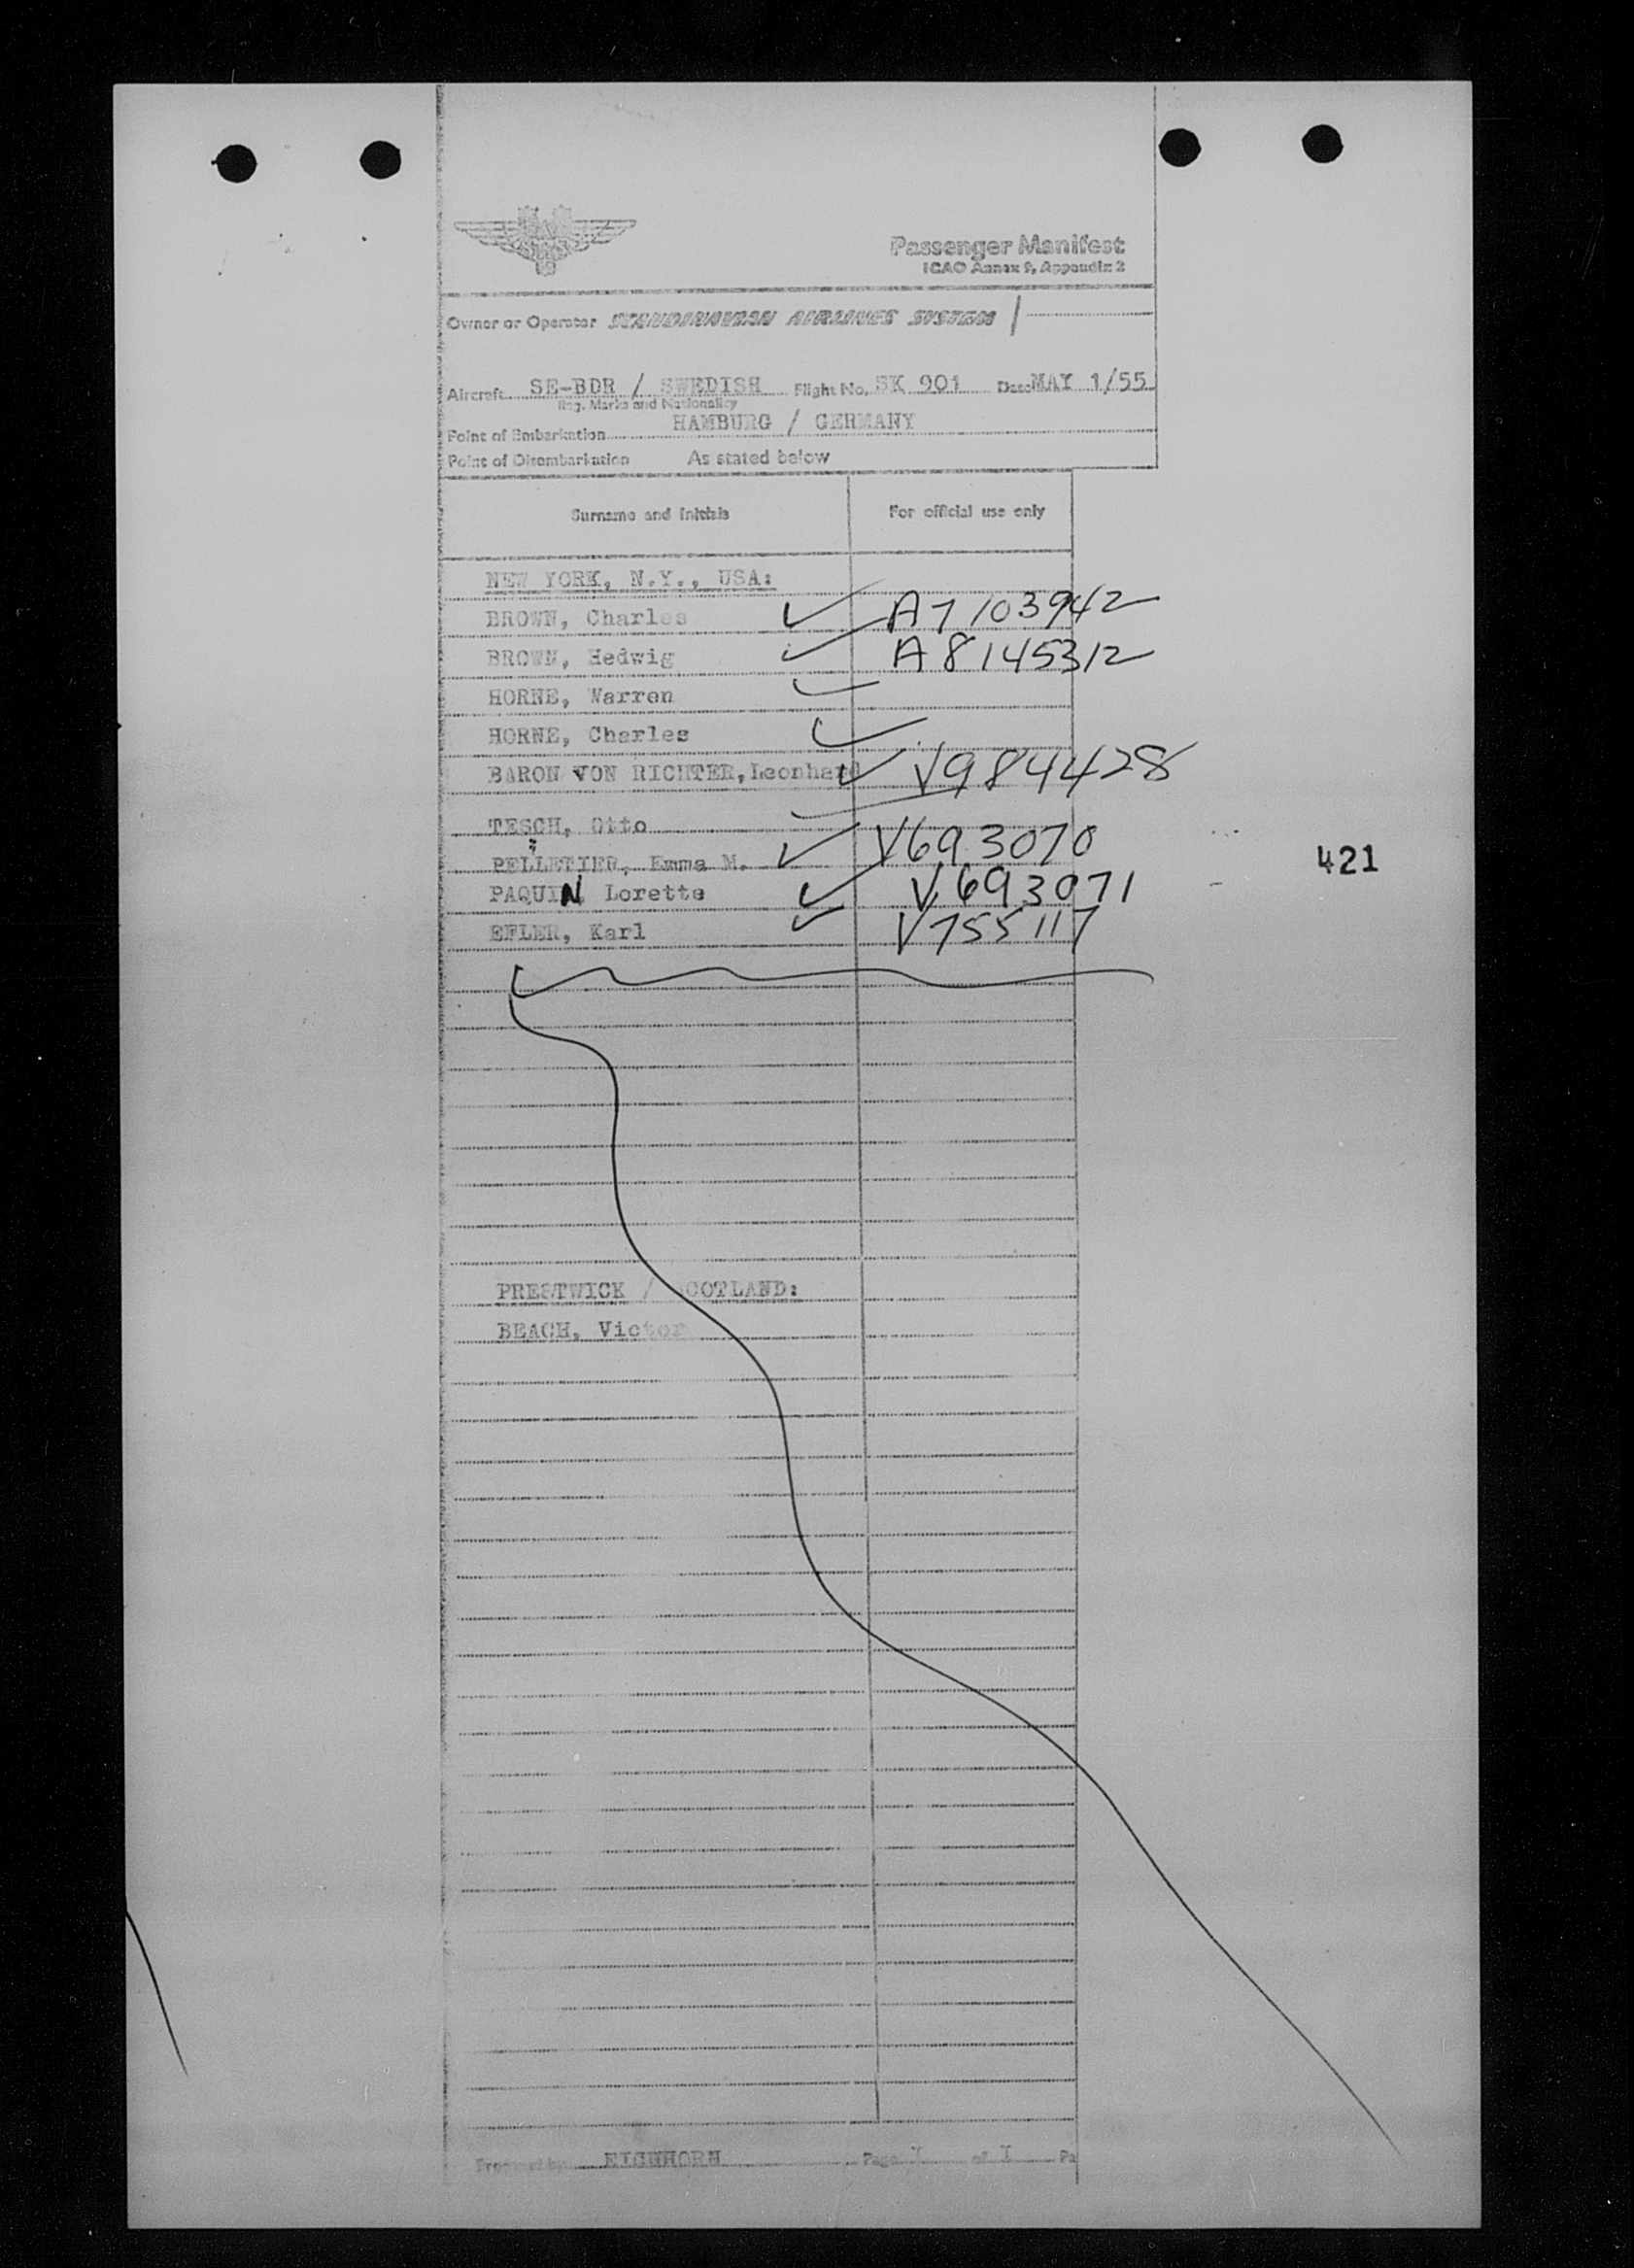 Passenger Manifest
ICAO Annex 9, Appendix 2
Owner or Operator SCANDINAVIAN AIRLINES SYSTEM
Aircraft SE-BDR / SWEDISH Flight No. SK 901 Date MAY 1/55
Reg. Marks and Nationality
Point of Embarkation HAMBURG / GERMANY
Point of Disembarkation As stated below
Surname and Initials For official use only
NEW YORK, N.Y., USA:
BROWN, Charles ✓ A7103942
BROWN, Hedwig ✓ A8145312
HORNE, Warren ✓
HORNE, Charles ✓
BARON VON RICHTER, Leonhard ✓ V984428
TESCH, Otto ✓
PELLETIER, Emma M. ✓ V693070
PAQUIN, Lorette ✓ V693071
EFLER, Karl ✓ V755117
421
PRESTWICK / SCOTLAND:
BEACH, Victor
Prepared by EICHHORN Page 1 of 1 Pa